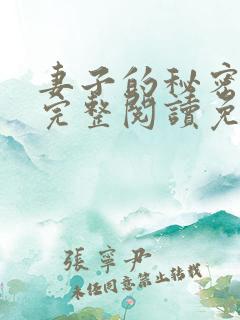 妻子的秘密
完整閱讀免
張寧尹
未經同意禁止轉載